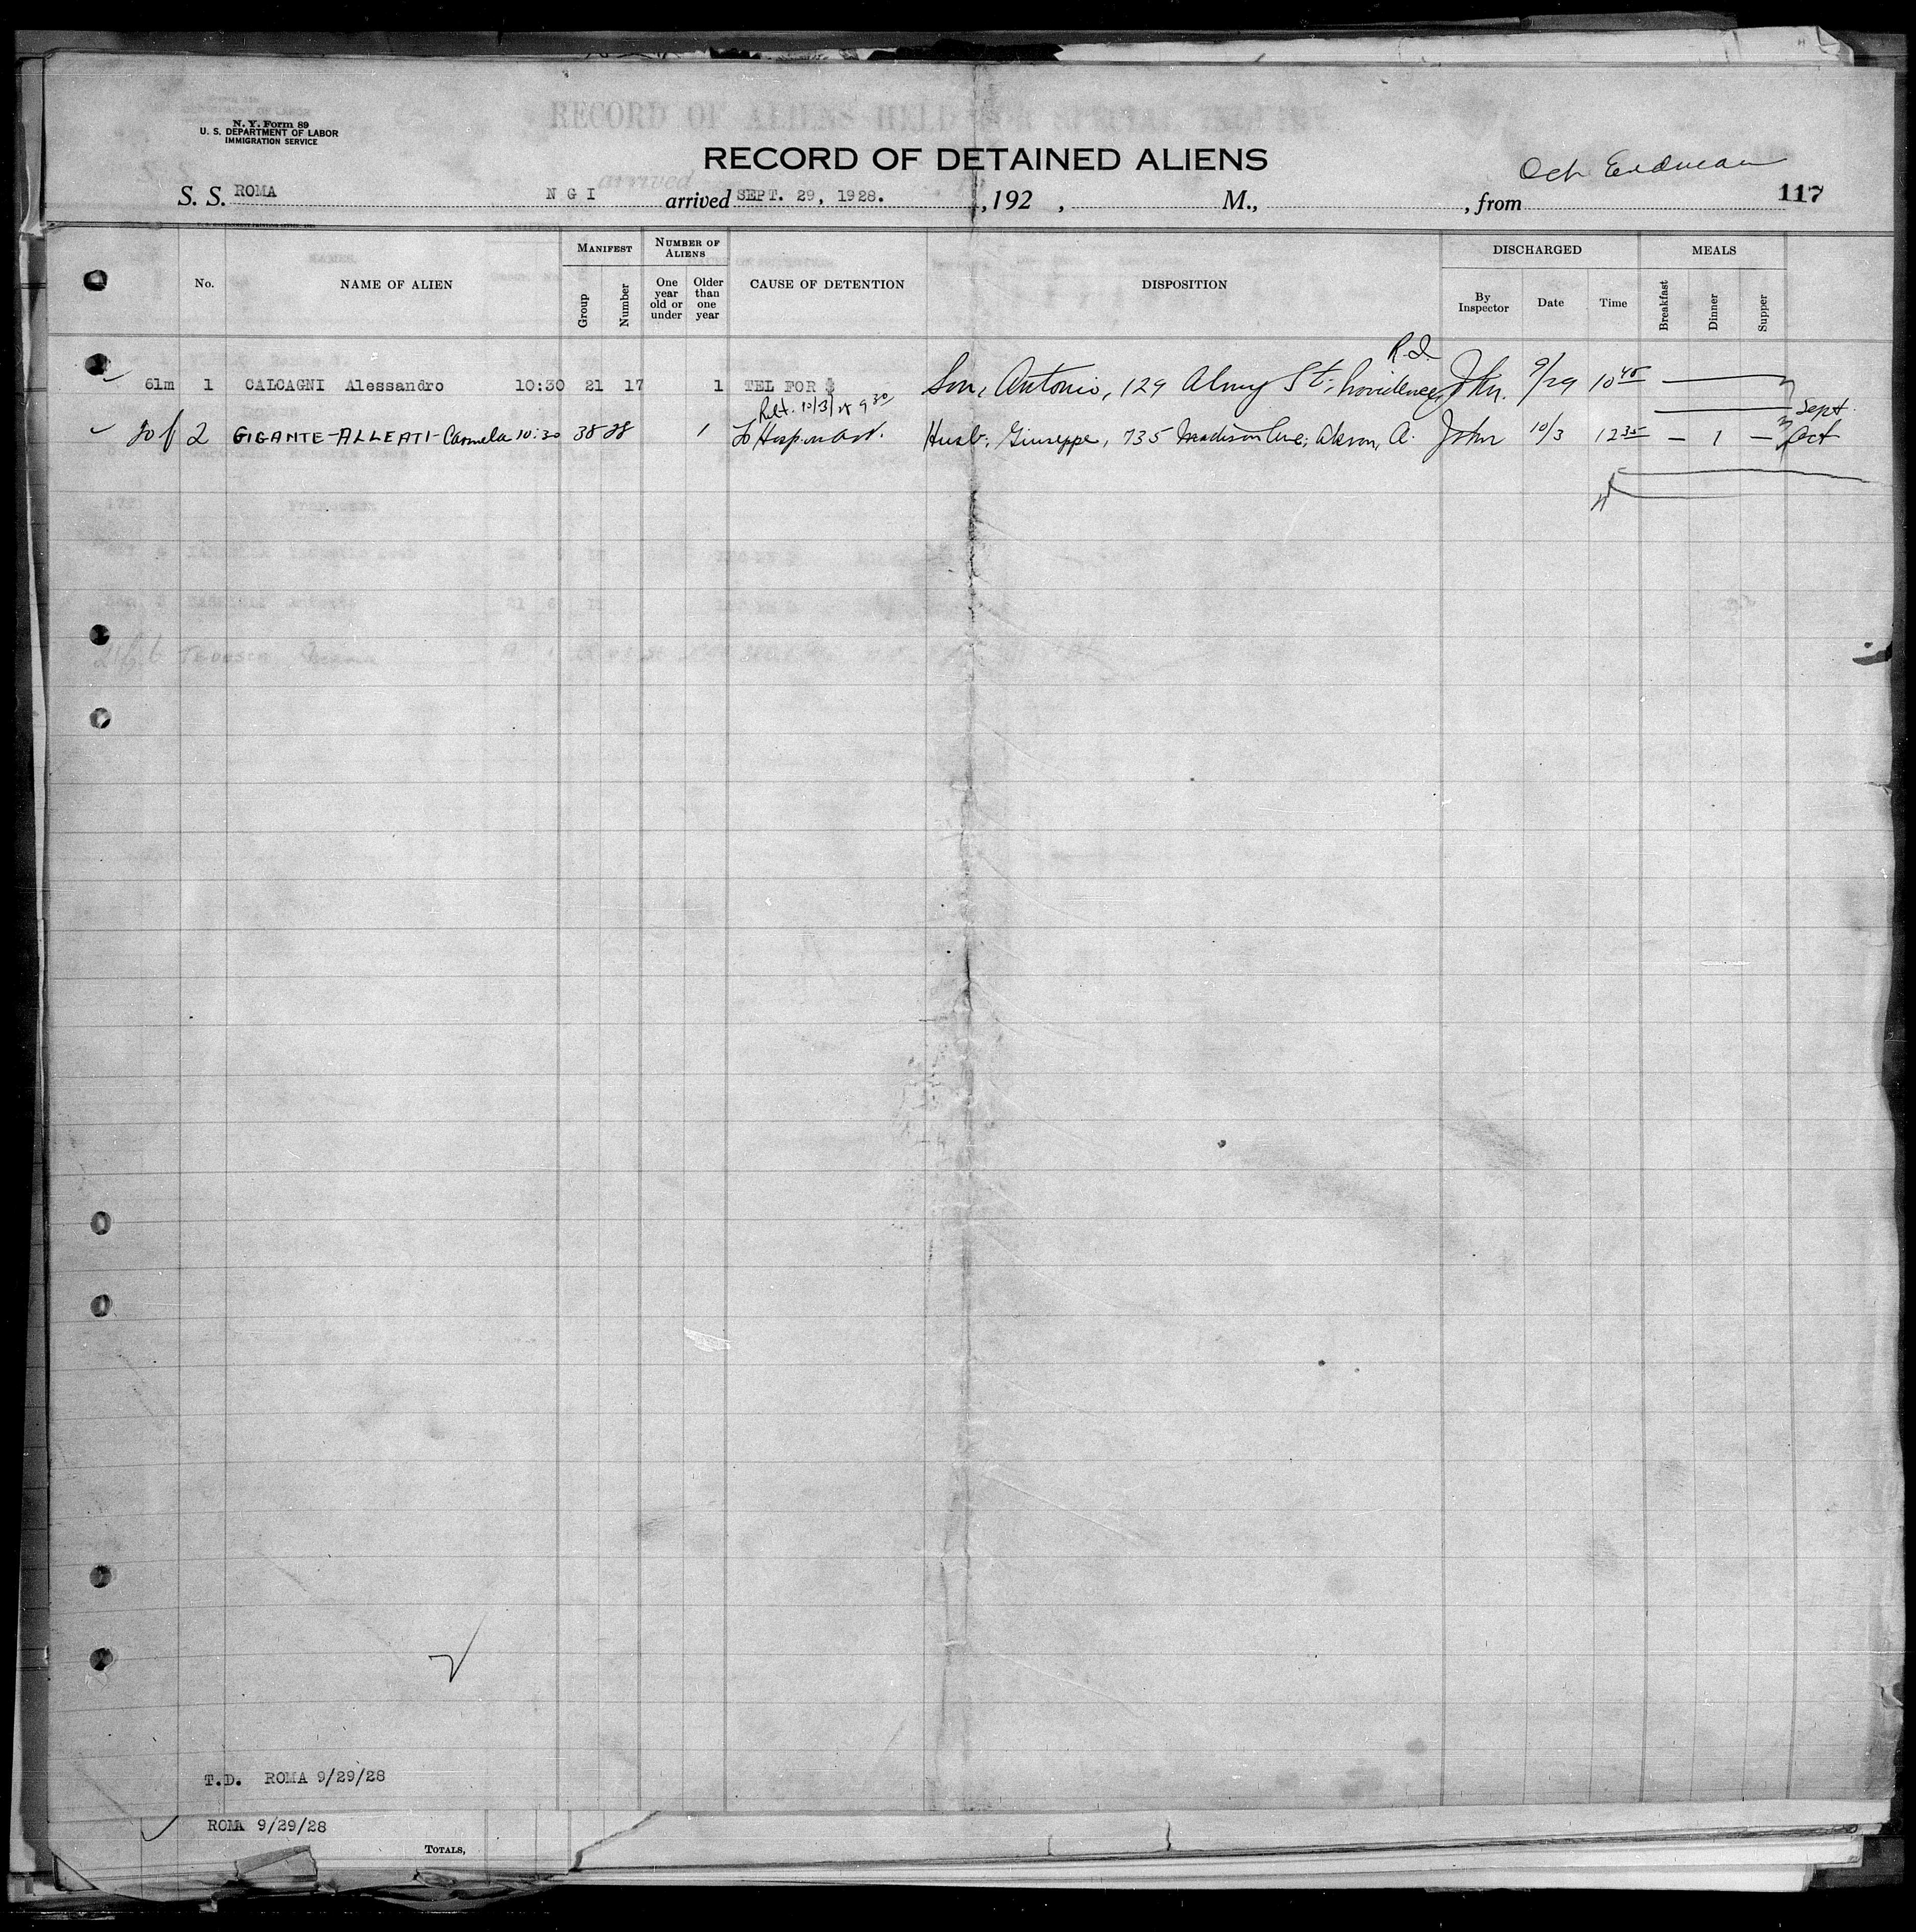 N. Y. Form 89
U. S. DEPARTMENT OF LABOR
IMMIGRATION SERVICE
RECORD OF DETAINED ALIENS
S. S. ROMA N G I arrived SEPT. 29, 1928. , 192 , M., , from 117
No. NAME OF ALIEN MANIFEST Group Number NUMBER OF ALIENS One year old or under Older than one year CAUSE OF DETENTION DISPOSITION DISCHARGED By Inspector Date Time MEALS Breakfast Dinner Supper
R.I.
61m 1 CALCAGNI Alessandro 10:30 21 17 1 TEL FOR $ Son, Antonio, 129 Almy St; Providence, 9/29 10 45
10/3/28 9 30
Sept
20 f 2 GIGANTE-ALLEATI-Carmela 10:30 38 28 1 To Hosp. Husb; Giuseppe, 735 Madison Ave; Akron, O. 10/3 12 35 – 1 – Oct
T.D. ROMA 9/29/28
ROMA 9/29/28
TOTALS,